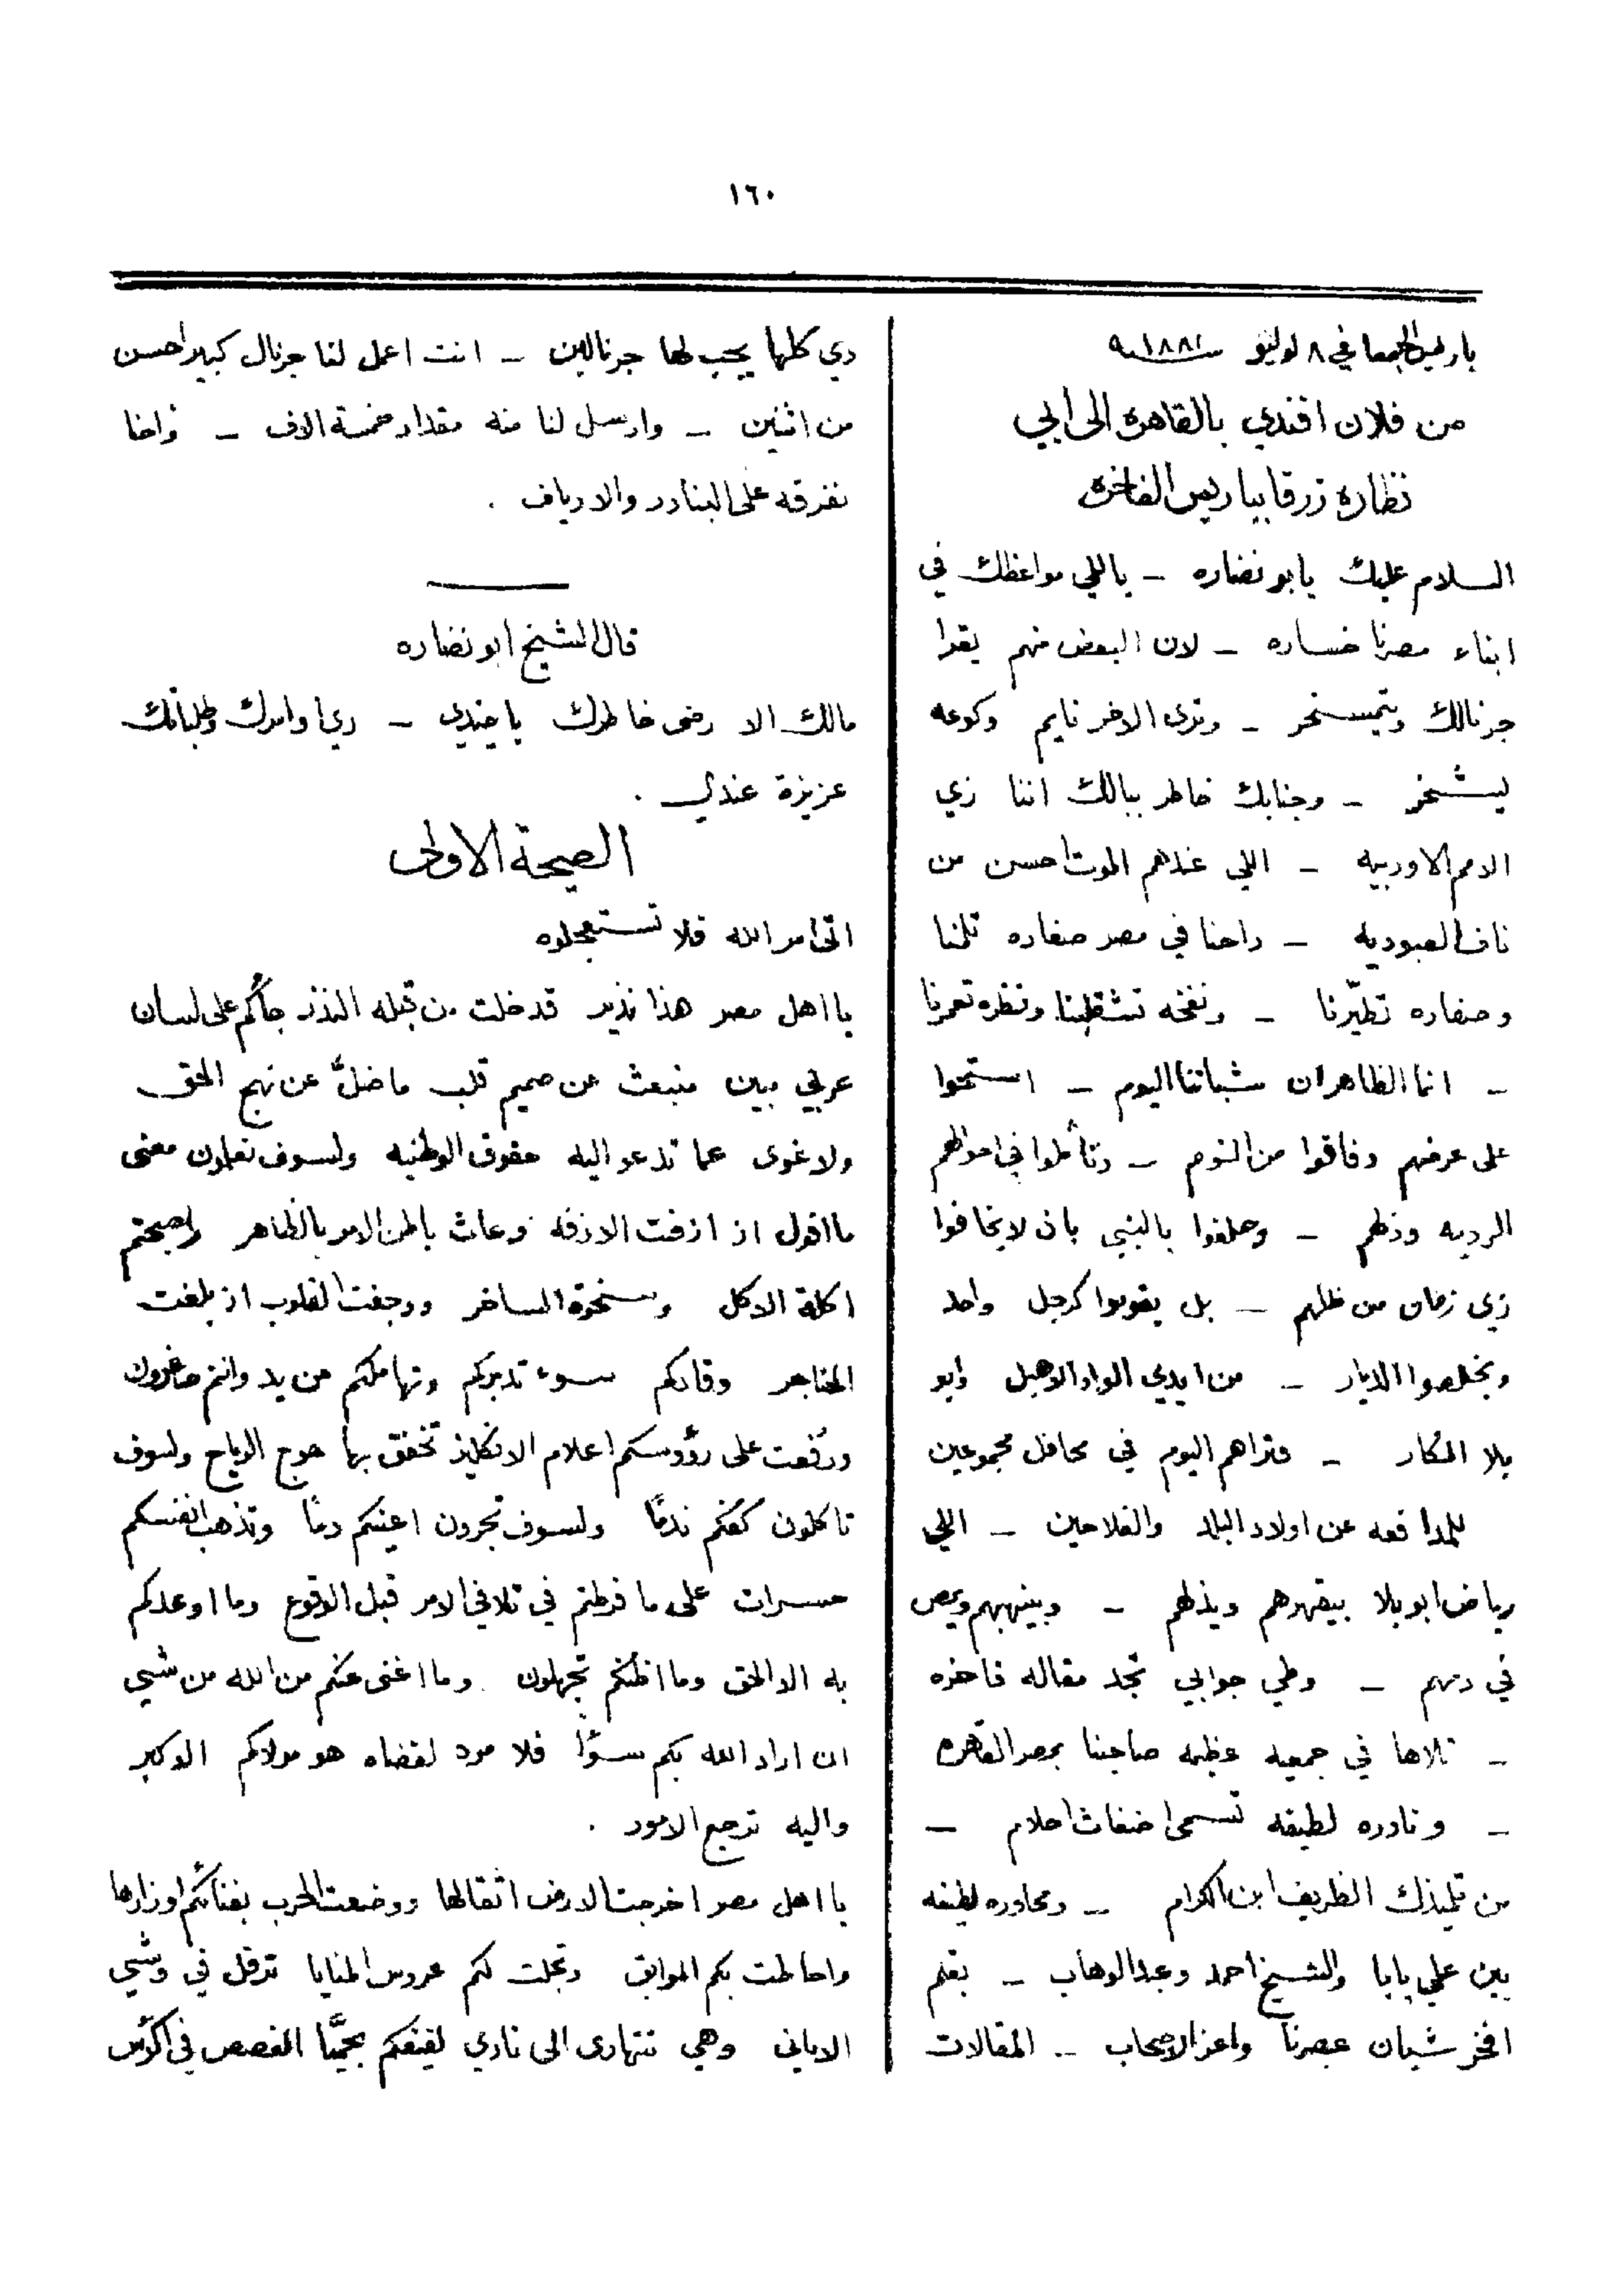 ١٦٠
باريس الجمعا في ٨ لوليو سنة ١٨٨١
من فلان افندي بالقاهره الى ابي
نظاره زرقا بباريس الفاخره
السلام عليك يابو نضاره – ياللي مواعظك في
ابناء مصرنا خساره – لان البعض منهم يقرا
جرنالك ويتمسخر – وترى الاخر نايم وكوعه
ليشخر – وجنابك خاطر ببالك اننا زي
الامم الاوربيه – اللي عندهم الموت احسن من
ناف العبوديه – واحنا في مصر صفاره تلمنا
وصفاره تطيّرنا – ونفخه تشقلبنا ونظره تعمرنا
– انما الظاهر ان شباننا اليوم – استحوا
على عرضهم وفاقوا من النوم – وتأملوا في احوالهم
الرديه وذلهم – وحلفوا بالنبي بان لا يخافوا
زي زمان من ظلهم – بل يقوموا كرجل واحد
ويخلصوا الديار – من ايدي الواد الاهبل وابو
بلا المكار – وتراهم اليوم في محافل مجموعين
للمدافعه عن اولاد البلد والفلاحين – اللي
رياض ابو بلا بيقهرهم ويذلهم – وبينهبهم ويمص
في دمهم – وطي جوابي تجد مقاله فاخره
– تلاها في جمعيه عظيمه صاحبنا بمصر القاهره
– ونادره لطيفه تسمى اضغاث احلام –
من تلميذك الظريف ابن الكرام – ومحاوره لطيفه
بين علي بابا والشيخ احمد وعبد الوهاب – بقلم
افخر شبان عصرنا واعز الاصحاب – المقالات
دي كلها يجب لها جرنالين – انت اعمل لنا جرنال كبير احسن
من اثنين – وارسل لنا منه مقدار خمسة الاف – واحنا
نفرقه على البنادر والارياف .
قال الشيخ ابو نضاره
مالك الا رضى خاطرك يا فندي – دي اوامرك وطلباتك
عزيزة عندي .
الصيحة الاولى
اتى امر الله فلا تستعجلوه
يا اهل مصر هذا نذير قد خلت من قبله النذر جاكم على لسان
عربي مبين منبعث عن صميم قلب ما ضلّ عن نهج الحق
ولا غوى عما تدعو اليه حقوق الوطنيه ولسوف تعلمون معنى
ما اقول اذ ازفت الازفه وعاث باطن الامر بالظاهر واصبحتم
اكلة الاكل وسخرة الساخر ووجفت القلوب اذ بلغت
الحناجر وقادكم سوء تدبركم وتهاملكم من يد وانتم صاغرون
ورفعت على رؤوسكم اعلام الانكليز تخفق بها هوج الرياح ولسوف
تاكلون كفكم ندمًا ولسوف تجرون اعينكم دمًا وتذهب انفسكم
حسرات على ما فرطتم في تلافي الامر قبل الوقوع وما اوعدكم
به الا الحق وما اظنكم تجهلون وما اغنى عنكم من الله من شيي
ان اراد الله بكم سوًا فلا مرد لقضاه هو مولاكم الاكبر
واليه ترجع الامور .
يا اهل مصر اخرجت الارض اثقالها ووضعت الحرب بفنائكم اوزارها
واحاطت بكم البوايق وتجلت لكم عروس المنايا ترفل في وشي
الاماني وهي تتهادى الى نادي لفيفكم بحميّا الغصص في اكؤس